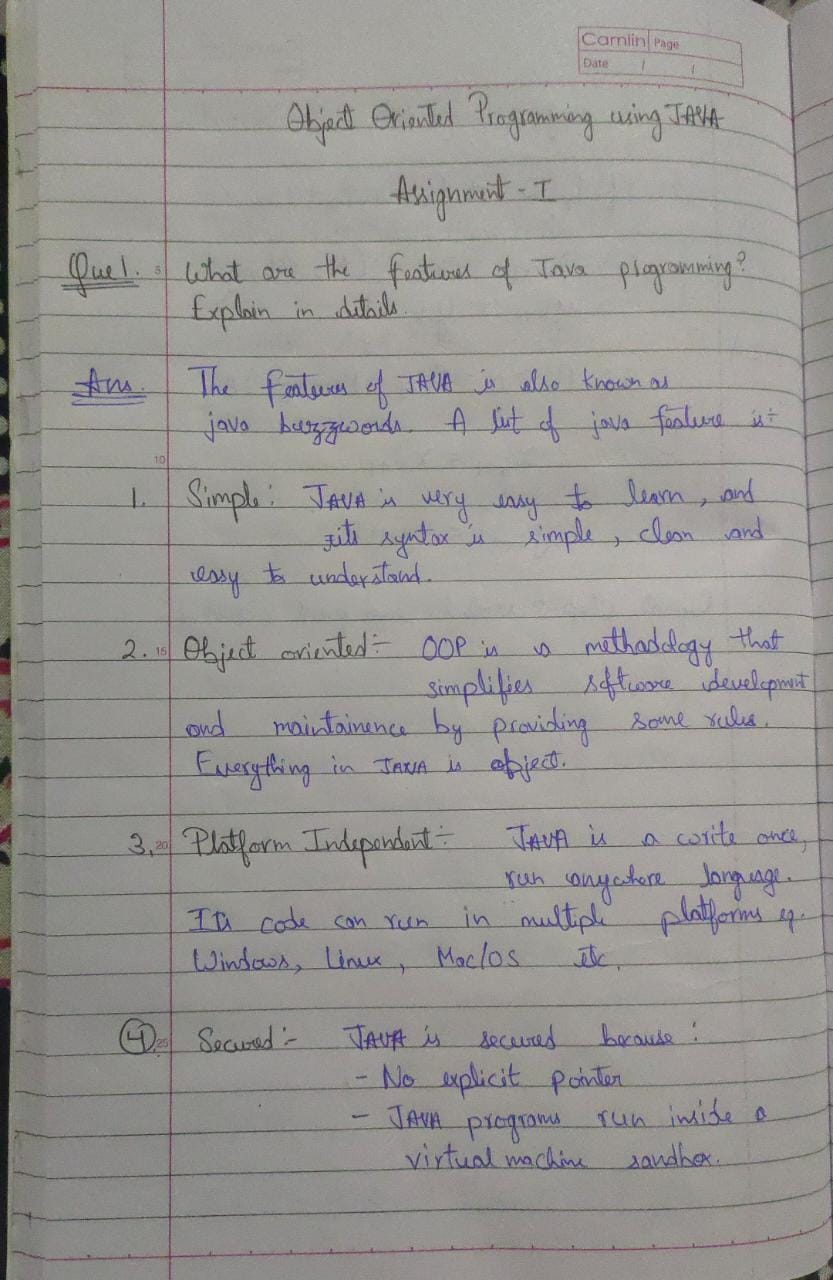 Camlin Page
Date / /
Object Oriented Programming using JAVA
Assignment - I
Que 1. 5 What are the features of Java programming?
Explain in details.
Ans. The features of JAVA is also known as
java buzzwords. A list of java feature is:-
10
1. Simple: JAVA is very easy to learn, and
its syntax is simple, clean and
easy to understand.
2. 15 Object oriented:- OOP is a methodology that
simplifies software development
and maintainence by providing some rules.
Everything in JAVA is object.
3. 20 Platform Independent:- JAVA is a write once,
run anywhere language.
Its code can run in multiple platforms eg.
Windows, Linux, Mac/OS etc.
4 25 Secured:- JAVA is secured because:
- No explicit pointer
- JAVA programs run inside a
virtual machine sandbox.